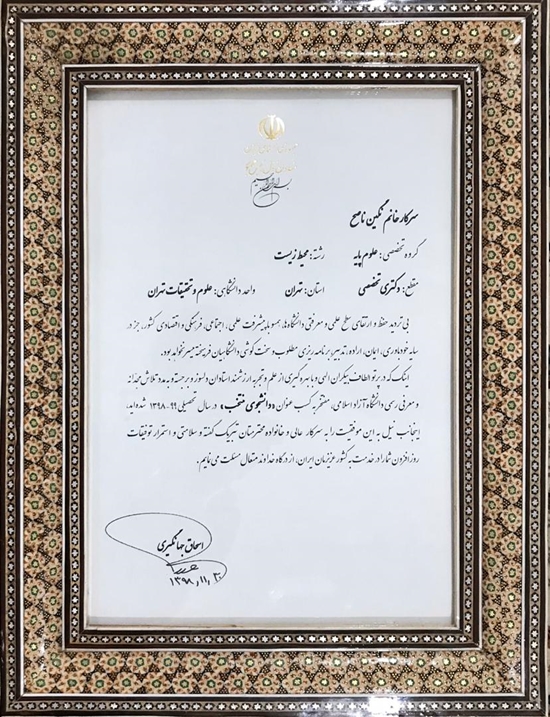 سرکار خانم نگین ناصح
گروه تخصصی: علوم پایه رشته: محیط زیست
مقطع: دکتری تخصصی استان: تهران واحد دانشگاهی: علوم و تحقیقات تهران
بی تردید حفظ و ارتقای سطح علمی و معرفتی دانشگاه‌ها، همسو با پیشرفت علمی، اجتماعی، فرهنگی و اقتصادی کشور، جز در
سایه خودباوری، ایمان، اراده، تدبیر، برنامه ریزی مطلوب و سخت کوشی دانشگاهیان فرهیخته میسر نخواهد بود.
اینک که در پرتو الطاف بیکران الهی و با بهره گیری از علم و تجربه ارزشمند استادان دلسوز و برجسته و به مدد تلاش مجدانه
و معرفی رسمی دانشگاه آزاد اسلامی، مفتخر به کسب عنوان «دانشجوی منتخب» در سال تحصیلی ۹۹-۱۳۹۸ شده‌اید،
اینجانب نیل به این موفقیت را به سرکار عالی و خانواده محترمتان تبریک گفته و سلامتی و استمرار توفیقات
روزافزون شما را در خدمت به کشور عزیزمان ایران، از درگاه خداوند متعال مسئلت می نمایم.
اسحاق جهانگیری